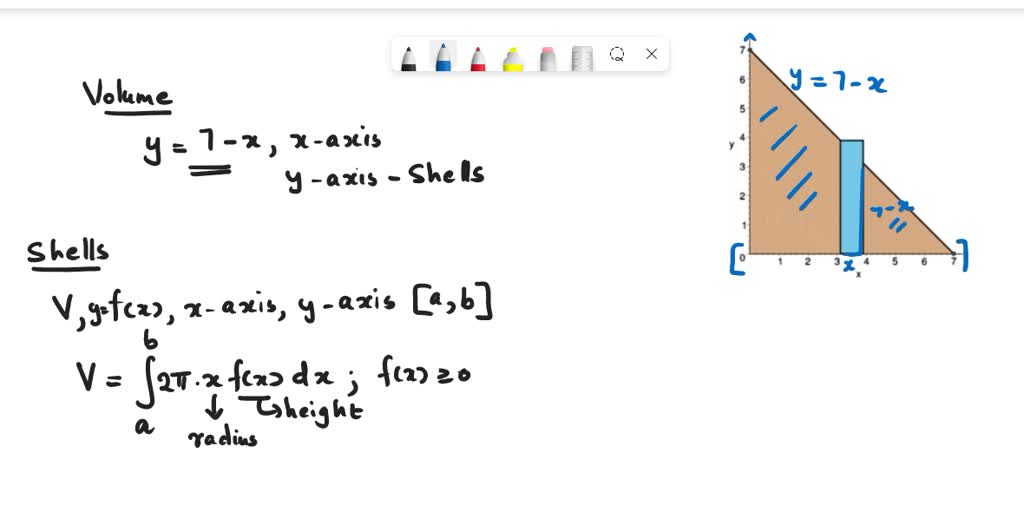 Volume
y = 7-x, x-axis
y-axis - Shells
Shells
V, y=f(x), x-axis, y-axis [a,b]
b
V = ∫ 2π.x f(x) dx ; f(x) ≥ 0
a
↓ ↳height
radius
y = 7-x
7
6
5
y 4
3
2
1
7-x
[ 0 1 2 3 x 4 5 6 7 ]
x